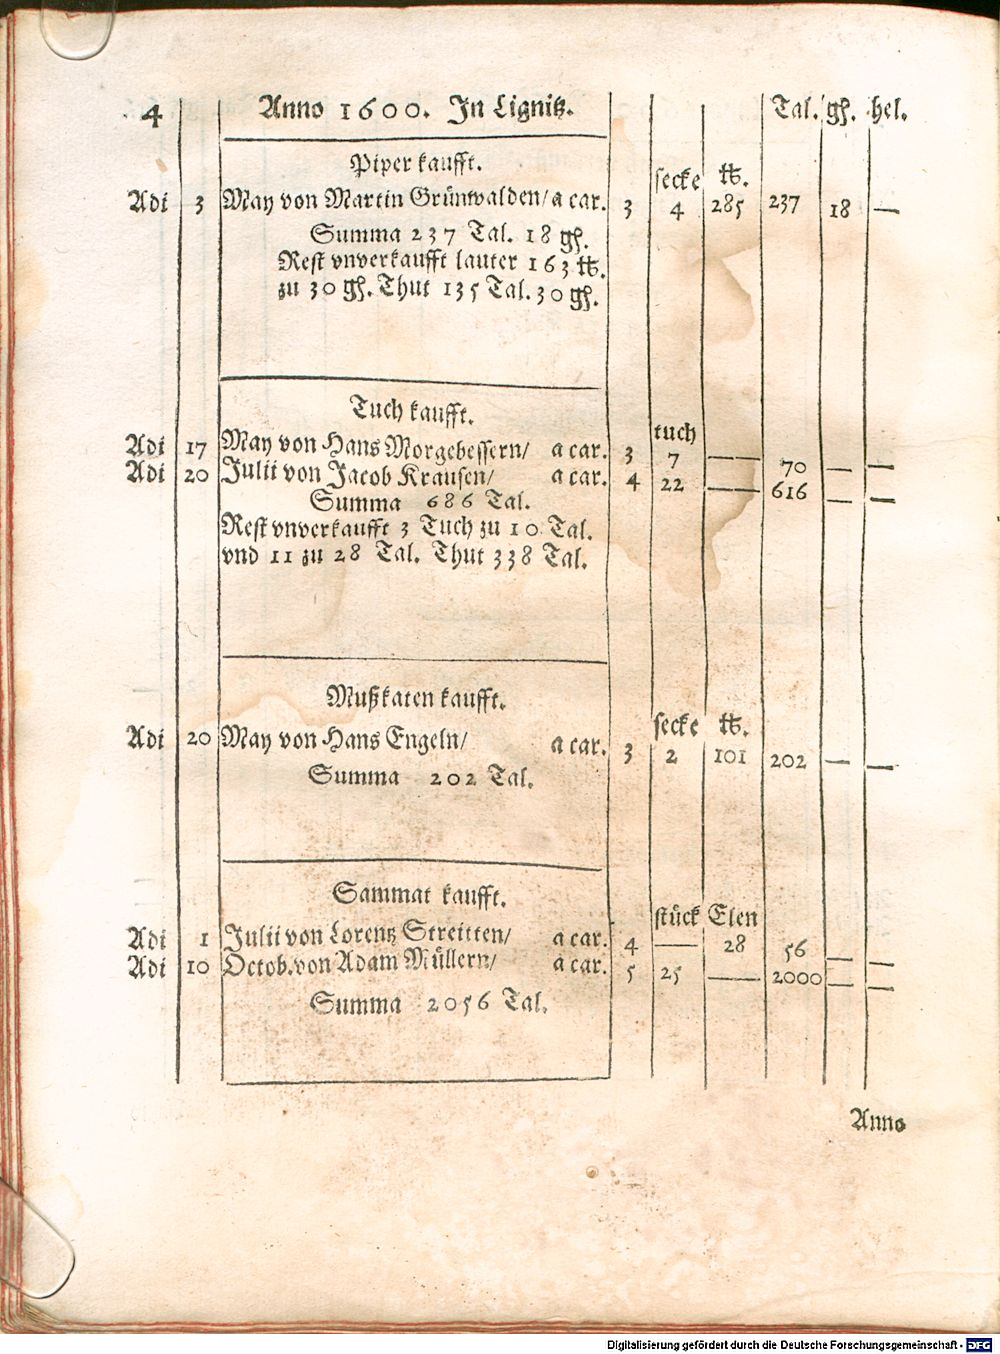 4 Anno 1600. In Lignitz. Tal. gſ. hel.
Piper kaufft.
secke ℔.
Adi 3 May von Martin Grünwalden/ a car. 3 4 285 237 18 —
Summa 237 Tal. 18 gſ.
Rest vnverkaufft lauter 163 ℔.
zu 30 gſ. Thut 135 Tal. 30 gſ.
Tuch kaufft.
tuch
Adi 17 May von Hans Morgebessern/ a car. 3 7 — 70 — —
Adi 20 Julii von Jacob Krausen/ a car. 4 22 — 616 — —
Summa 686 Tal.
Rest vnverkaufft 3 Tuch zu 10 Tal.
vnd 11 zu 28 Tal. Thut 338 Tal.
Mußkaten kaufft.
secke ℔.
Adi 20 May von Hans Engeln/ a car. 3 2 101 202 — —
Summa 202 Tal.
Sammat kaufft.
stück Elen
Adi 1 Julii von Lorentz Streitten/ a car. 4 — 28 56 — —
Adi 10 Octob. von Adam Müllern/ a car. 5 25 — 2000 — —
Summa 2056 Tal.
Anno
Digitalisierung gefördert durch die Deutsche Forschungsgemeinschaft - DFG